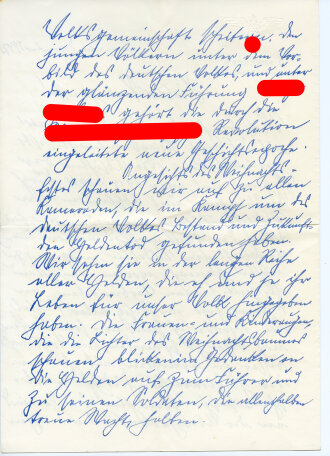 Volksgemeinschaft scheitern. Den
jungen Völkern unter dem Vor-
bild des deutschen Volkes und unter
der glänzenden Führung
gehört die durch die
Revolution
eingeleitete neue Geschichtsepoche.
Angesichts des Weihnachts-
festes schauen wir auf zu allen
Kameraden, die im Kampf um des
deutschen Volkes Bestand und Zukunft
den Heldentod gefunden haben.
Wir sehen sie in der langen Reihe
aller Helden, die je ihr
Leben für unser Volk hingegeben
haben. Die Frauen- und Kinderaugen,
die die Lichter des Weihnachtsbaumes
schauen, blicken im Gedanken an
die Helden auf zum Führer und
zu seinen Soldaten, die allenthalben
treue Wacht halten.